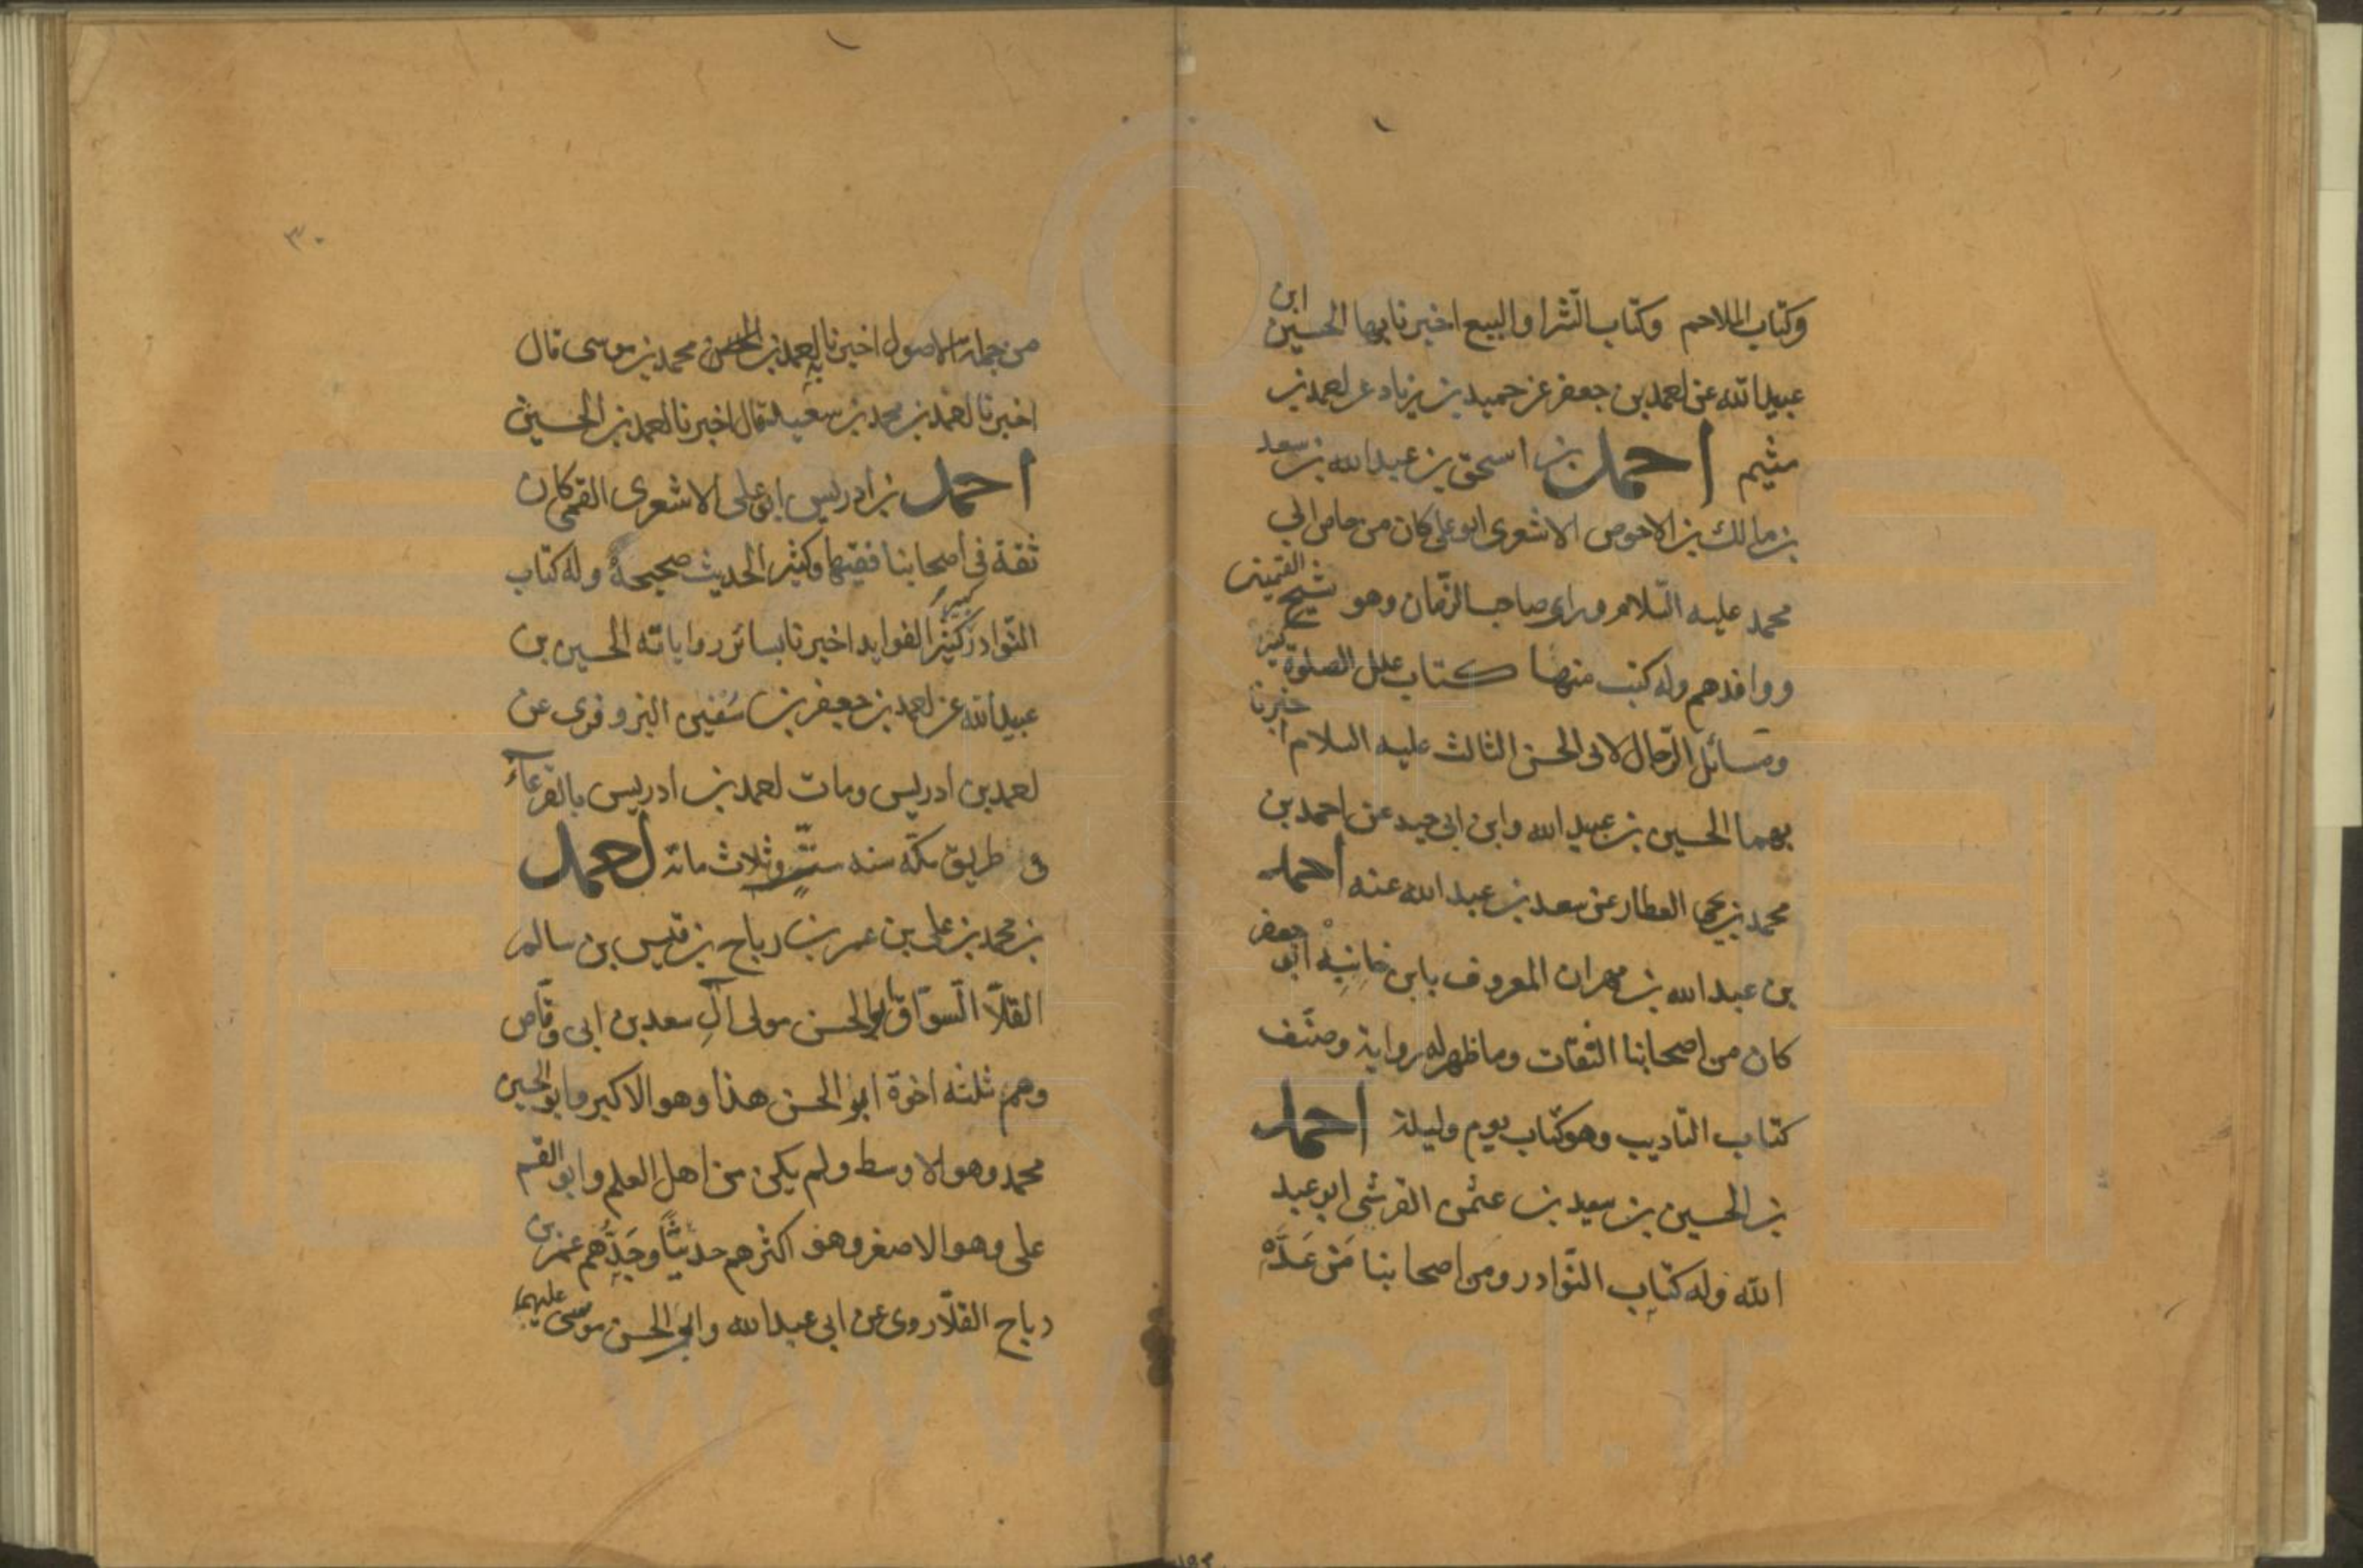 وكتاب الملاحم وكتاب الشرا والبيع اخبرنا بها الحسين ابن
عبيد الله عن احمد بن جعفر عن حميد بن زياد عن احمد بن
ميثم احمد بن اسحق بن عبد الله بن سعد
بن مالك بن الاحوص الاشعرى ابو على كان من خاص ابي
محمد عليه السلام وراى صاحب الزمان وهو شيخ القميين
ووافدهم وله كتب منها كتاب علل الصلوة كبير
ومسائل الرجال لابى الحسن الثالث عليه السلام اخبرنا
بهما الحسين بن عبيد الله وابن ابى جيد عن احمد بن
محمد بن يحيى العطار عن سعد بن عبد الله عنه احمد
بن عبد الله بن مهران المعروف بابن خانبه ابو جعفر
كان من اصحابنا الثقات وما ظهر له رواية وصنف
كتاب التاديب وهو كتاب يوم وليلة احمد
بن الحسين بن سعيد بن عثمن القرشى ابو عبد
الله وله كتاب النوادر ومن اصحابنا من عده
٣٠
من جملة الاصول اخبرنا به احمد بن محمد بن موسى قال
اخبرنا احمد بن محمد بن سعيد قال اخبرنا احمد بن الحسين
احمد بن ادريس ابو على الاشعرى القمى كان
ثقة فى اصحابنا فقيها وكثير الحديث صحيحه وله كتاب
النوادر كثير الفوايد اخبرنا بسائر رواياته الحسين بن
عبيد الله عن احمد بن جعفر بن سفين البزوفرى عن
احمد بن ادريس ومات احمد بن ادريس بالقرعاء
فى طريق مكة سنه ست وثلاث مائة احمد
بن محمد بن على بن عمر بن رباح بن قيس بن سالم
القلّا السوّاق ابو الحسن مولى آل سعد بن ابى وقاص
وهم ثلثه اخوة ابو الحسن هذا وهو الاكبر وابو الحسين
محمد وهو الاوسط ولم يكن من اهل العلم وابو القسم
على وهو الاصغر وهو اكثرهم حديثا وجدهم عمر بن
رباح القلّا روى عن ابى عبد الله وابى الحسن موسى عليهما
www.ical.ir